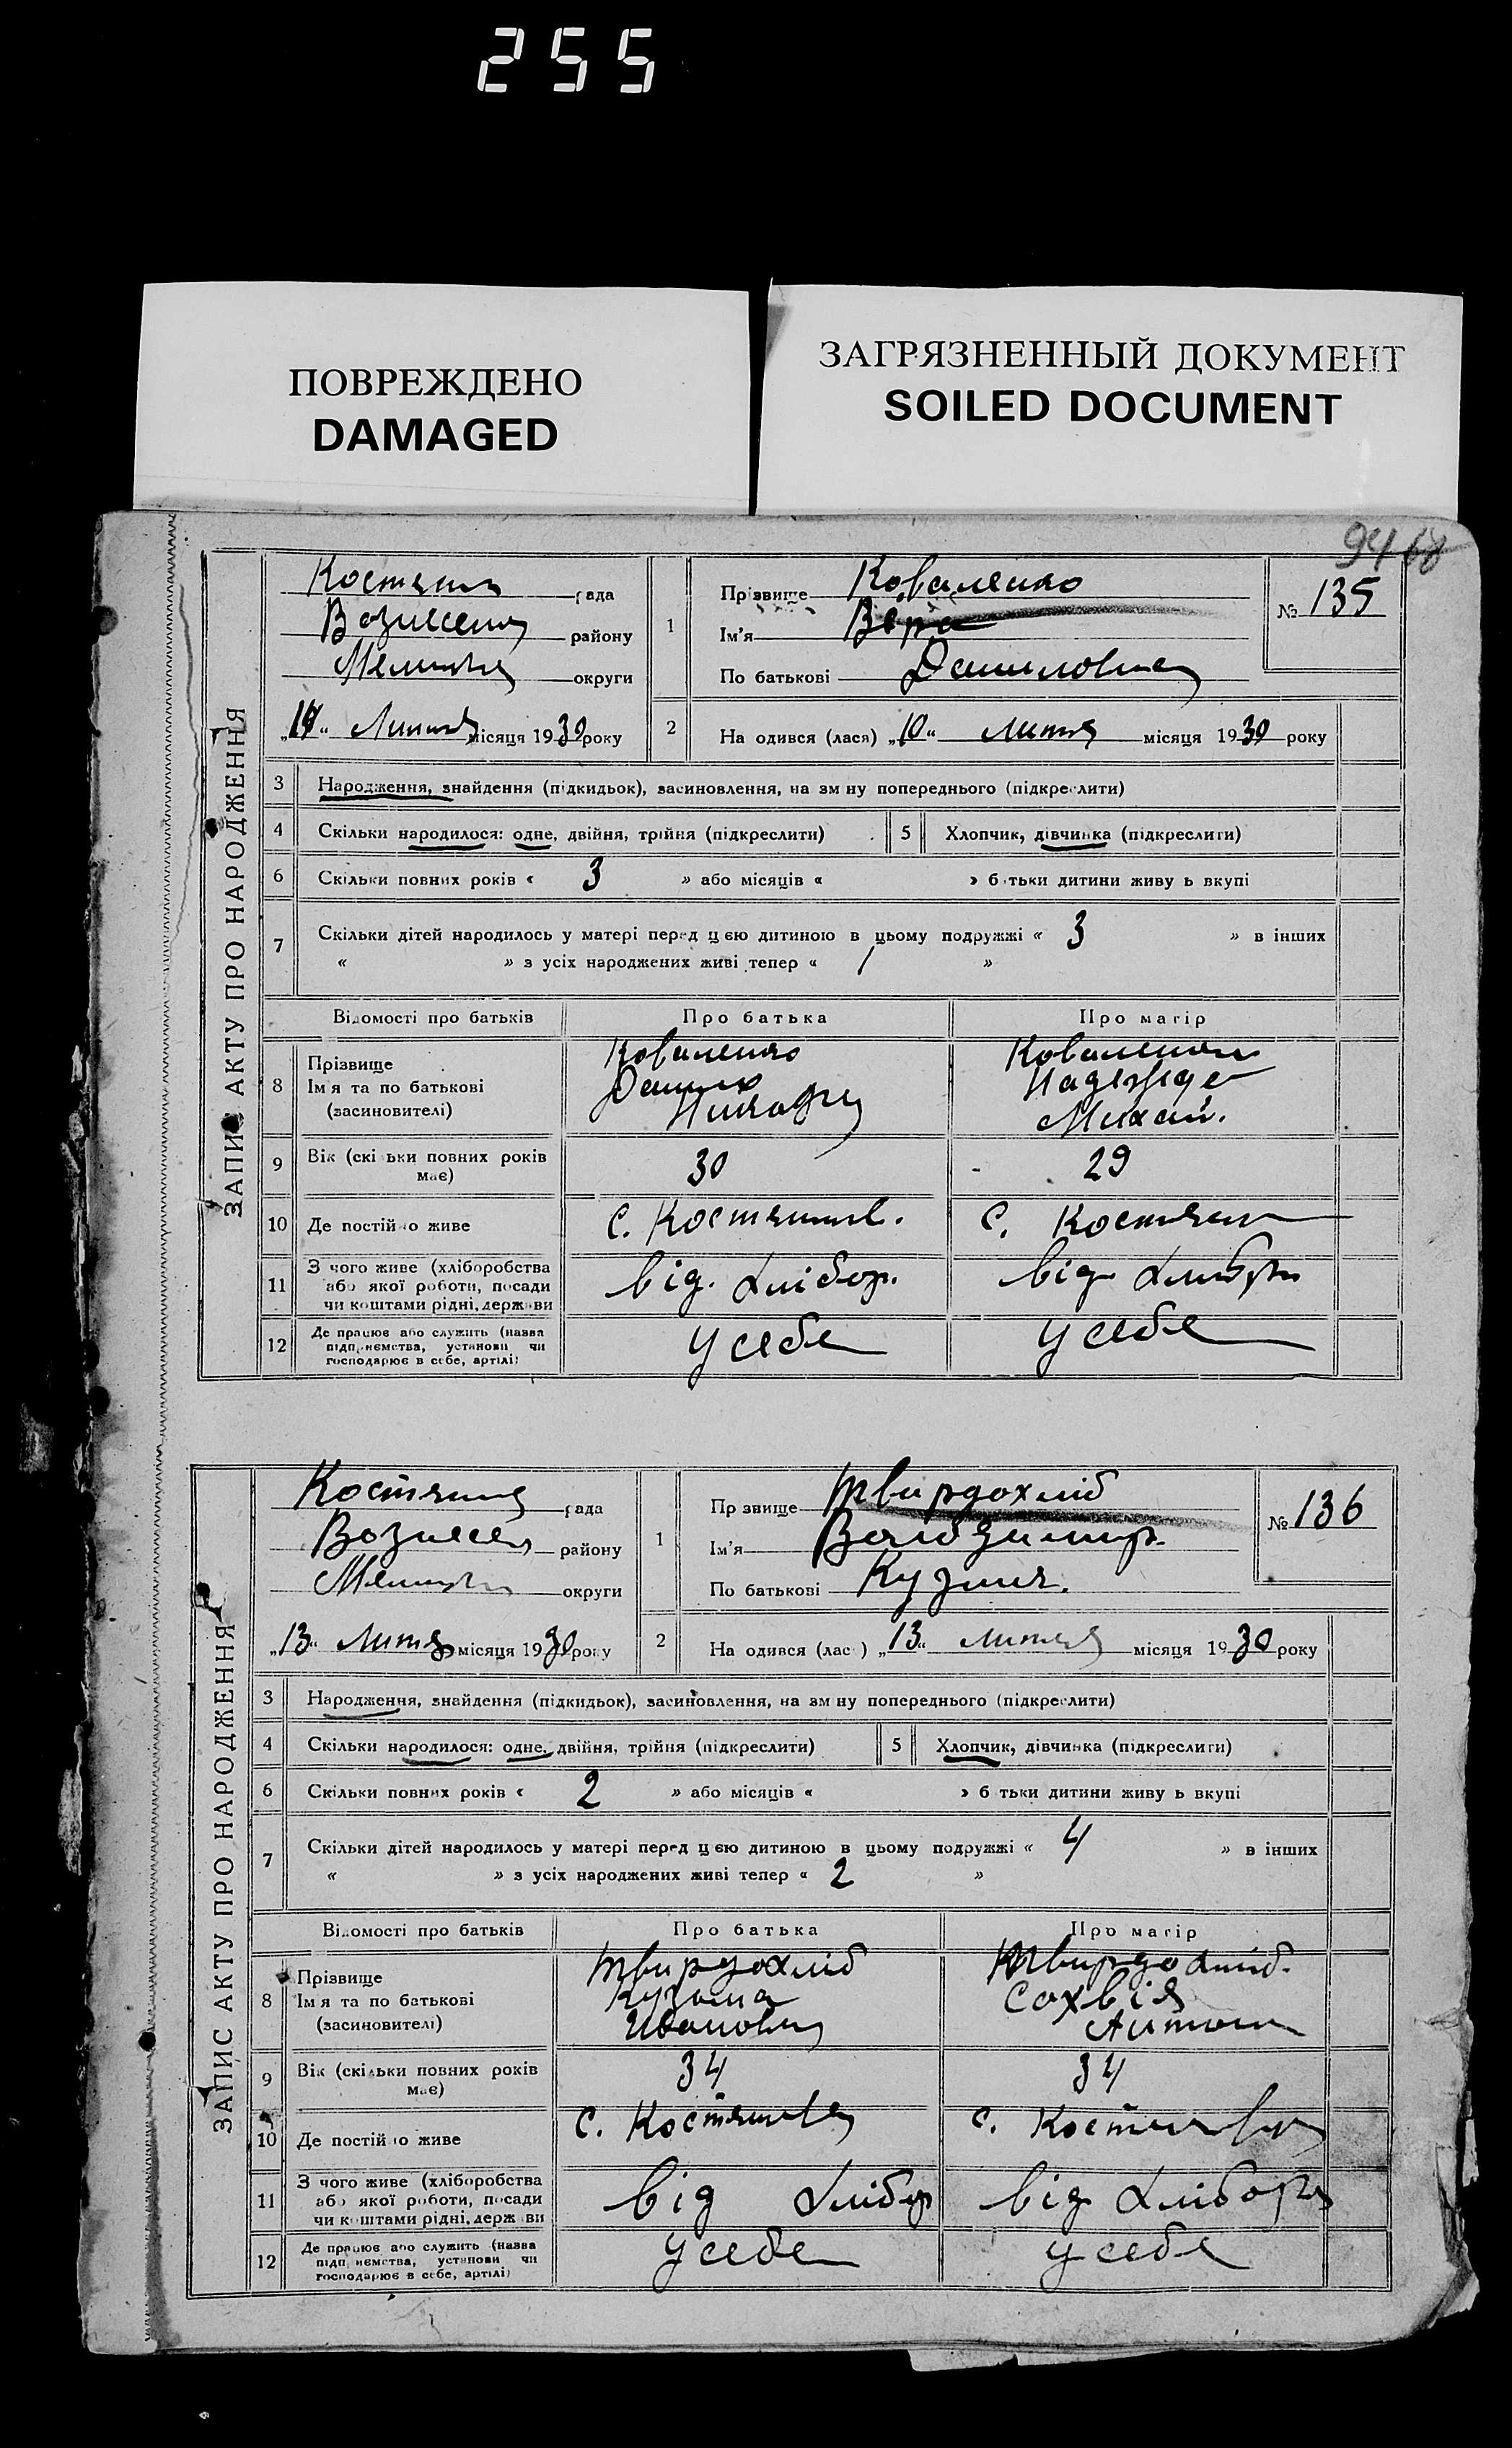 255
ПОВРЕЖДЕНО
DAMAGED
ЗАГРЯЗНЕННЫЙ ДОКУМЕНТ
SOILED DOCUMENT
94 68
ЗАПИС АКТУ ПРО НАРОДЖЕННЯ
рада
району
округи
місяця 1930 року
1
Прізвище Коваленко
Ім'я Вера
По батькові Даниловна
№ 135
2 На одився (лася) „10“ місяця 1930 року
3 Народження, знайдення (підкидьок), засиновлення, на зм ну попереднього (підкреслити)
4 Скільки народилося: одне, двійня, трійня (підкреслити) 5 Хлопчик, дівчинка (підкреслити)
6 Скільки повних років « 3 » або місяців « » б тьки дитини живу ь вкупі
7 Скільки дітей народилось у матері перед цією дитиною в цьому подружжі « 3 » в інших
« » з усіх народжених живі тепер « 1 »
Відомості про батьків Про батька Про матір
8 Прізвище Коваленко
Ім'я та по батькові Данило Надежда
(засиновителі) Михай.
9 Вік (скі ьки повних років 30 29
має)
10 Де постійно живе с. с.
11 З чого живе (хліборобства від. хлібор. від
або якої роботи, посади
чи коштами рідні, держави
12 Де працює або служить (назва у себе у себе
підприємства, установи чи
господарює в себе, артілі)
ЗАПИС АКТУ ПРО НАРОДЖЕННЯ
рада
району
округи
„13“ місяця 1930 року
1
Пр звище Твирдохліб
Ім'я Володимир.
По батькові Кузмич.
№ 136
2 На одився (лас ) „13“ місяця 1930 року
3 Народження, знайдення (підкидьок), засиновлення, на зм ну попереднього (підкреслити)
4 Скільки народилося: одне, двійня, трійня (підкреслити) 5 Хлопчик, дівчинка (підкреслити)
6 Скільки повних років « 2 » або місяців « » б тьки дитини живу ь вкупі
7 Скільки дітей народилось у матері перед цією дитиною в цьому подружжі « 4 » в інших
« » з усіх народжених живі тепер « 2 »
Відомості про батьків Про батька Про матір
8 Прізвище Твирдохліб Твирдохліб.
Ім'я та по батькові Кузьма Сохвія
(засиновителі) Иванович
9 Вік (скільки повних років 34 34
має)
10 Де постійно живе с. с.
11 З чого живе (хліборобства від хлібор від хлібор
або якої роботи, посади
чи коштами рідні, держ ви
12 Де працює або служить (назва у себе у себе
підп иємства, установи чи
господарює в себе, артілі)